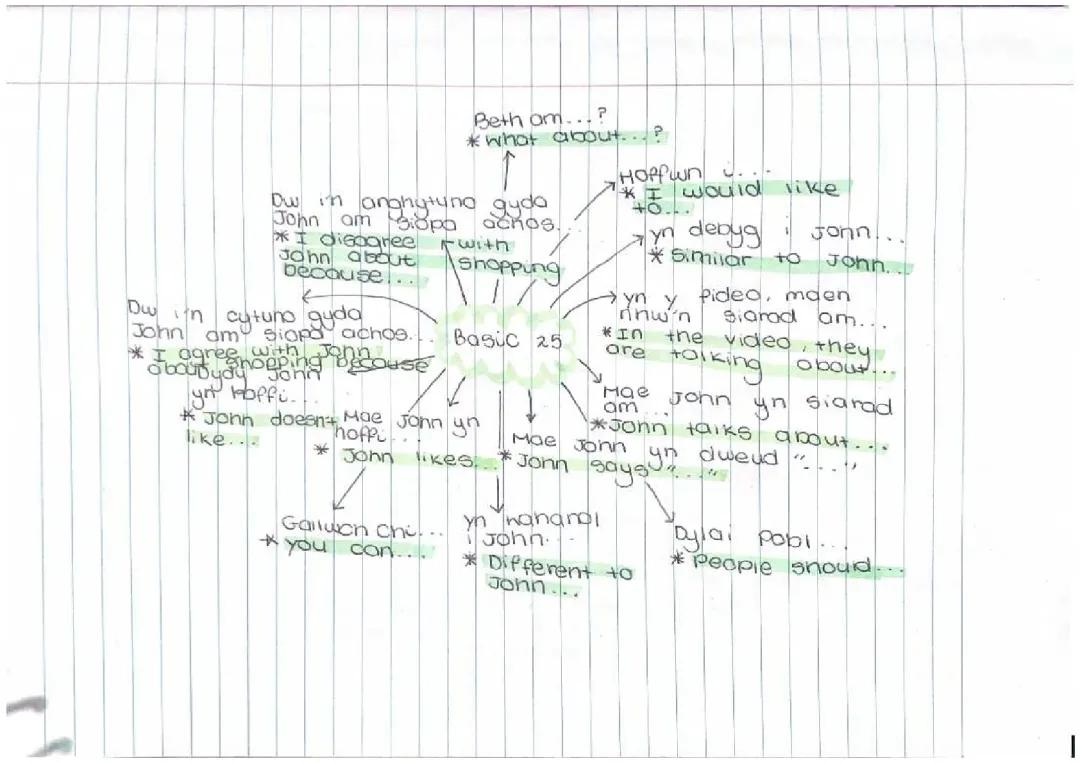 Beth am...?
* What about...?
Hoffwn i...
* I would like
to...
Dw i'n anghytuno gyda
John am siopa achos...
* I disagree with
John about shopping
because...
yn debyg i John...
* Similar to John...
yn y fideo, maen
nhw'n siarad am...
* In the video, they
are talking about...
Dw i'n cytuno gyda
John am siopa achos...
* I agree with John
about shopping because
Basic 25
Dydy John
yn hoffi...
* John doesn't
like...
Mae John yn
hoffi...
* John likes...
Mae John yn siarad
am...
* John talks about...
Mae John yn dweud "..."
* John says "..."
Gallwch chi...
* you can...
yn wahanol
i John...
* Different to
John...
Dylai pobl...
* People should...